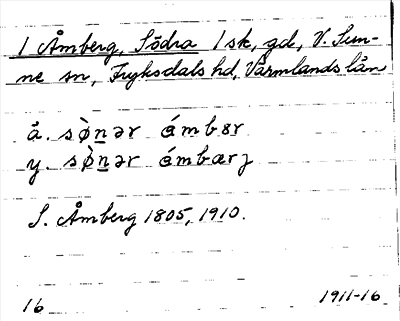 1 Åmberg, Södra 1 sk, gd, V. Sun-
ne sn, Fryksdals hd, Värmlands län
å. sø̀nər ámbær
y. sø̀nər ámbærj
S. Åmberg 1805, 1910.
16 1911-16